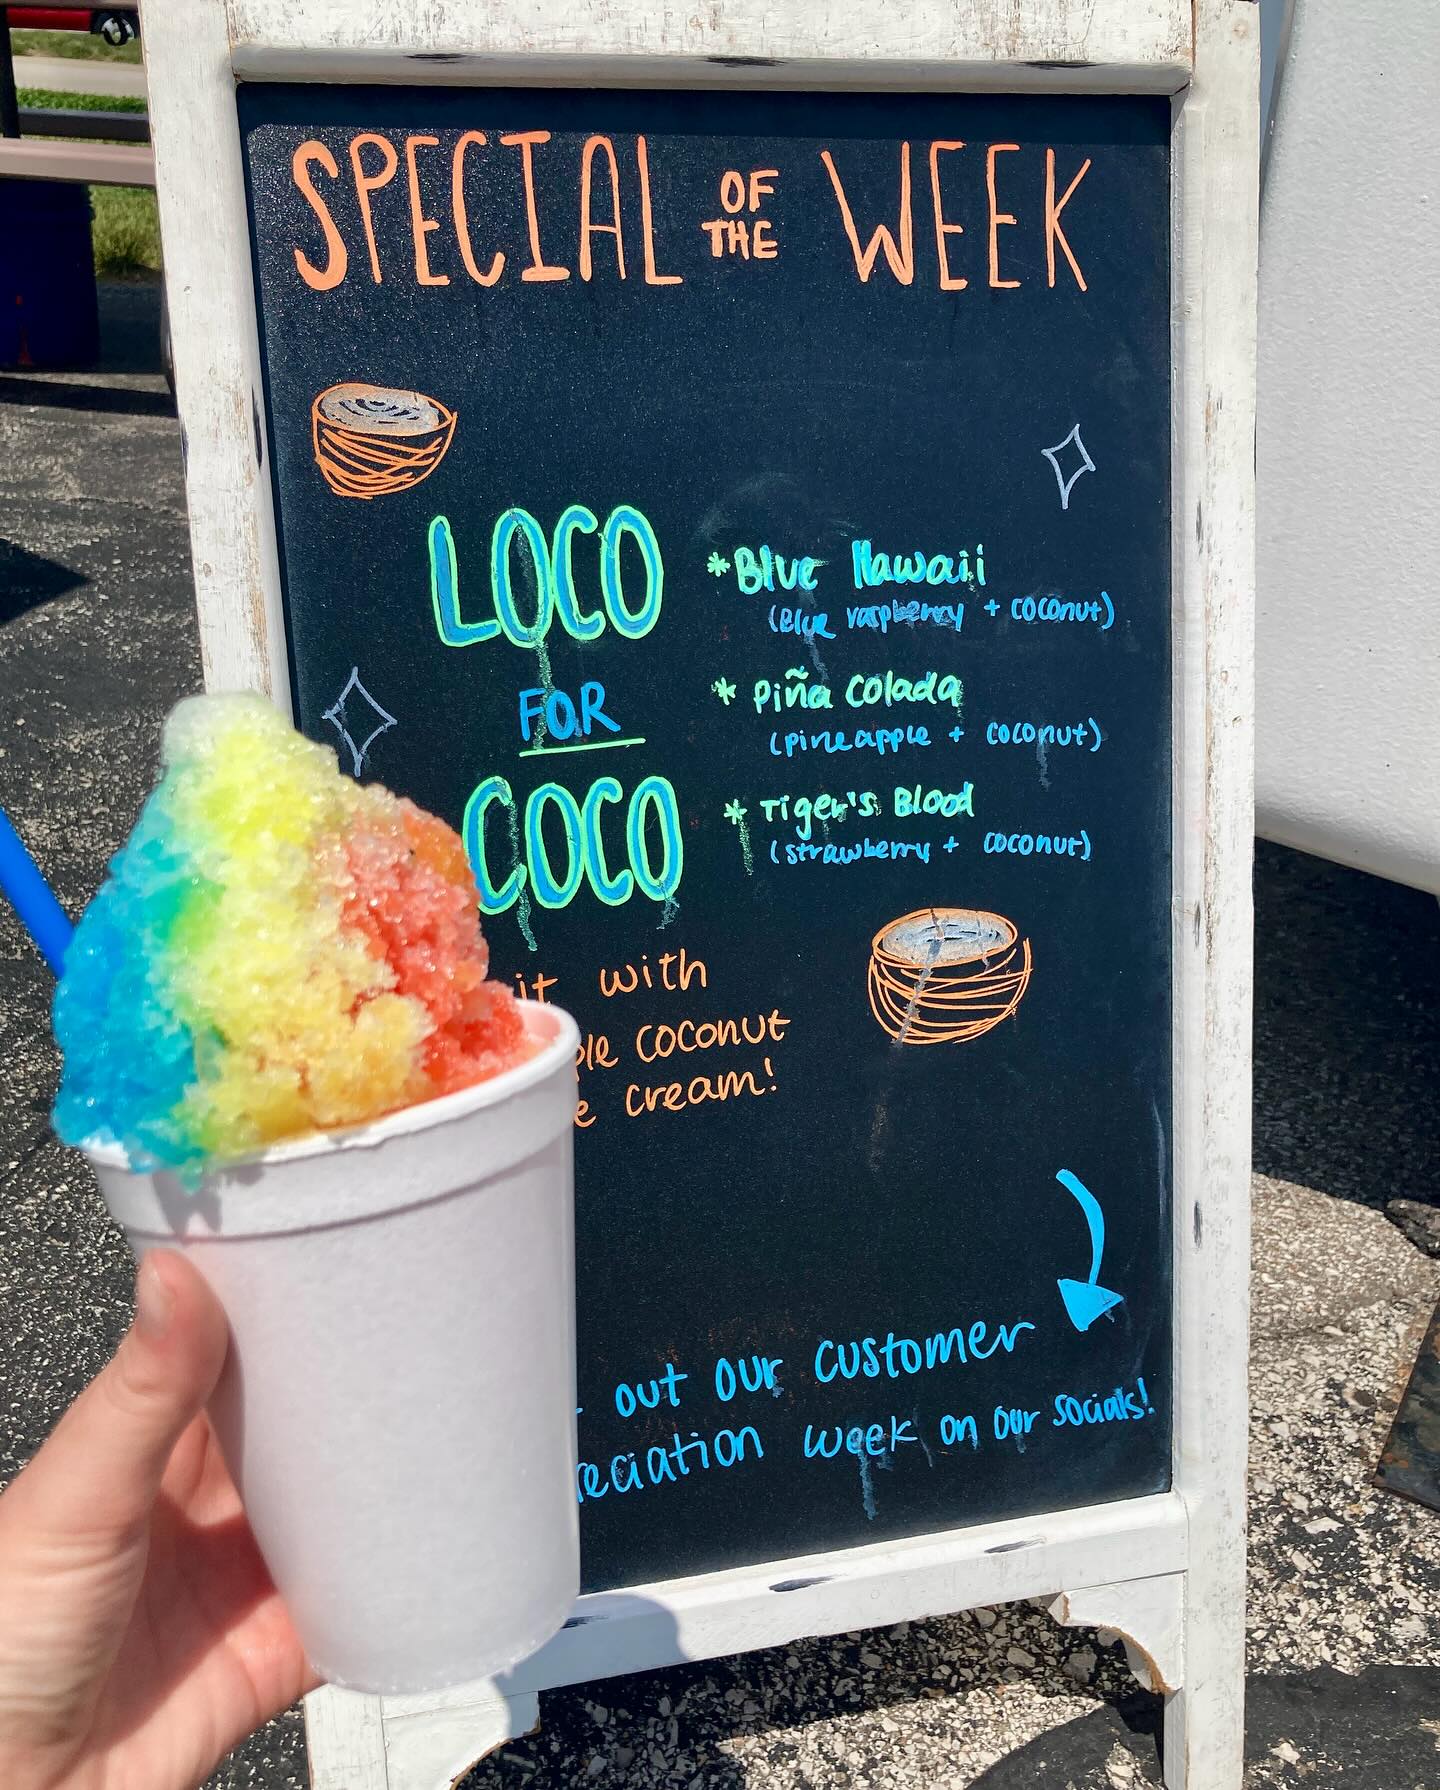 SPECIAL OF THE WEEK
LOCO
FOR
COCO
*Blue Hawaii
(Blue raspberry + coconut)
* Piña Colada
(pineapple + coconut)
* Tiger's Blood
(strawberry + coconut)
it with
coconut
cream!
out our customer
week on our socials!